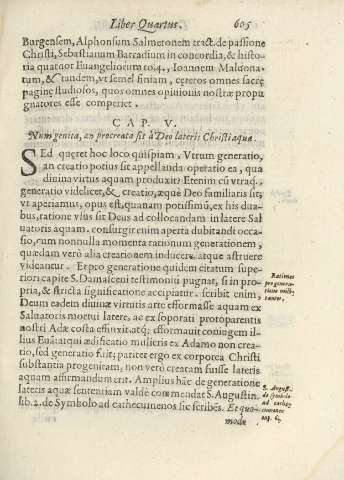 Liber Quartus. 605
Burgensem, Alphonsum Salmeronem tract. de passione
Christi, Sebastianum Barradium in concordia, & histo-
ria quatuor Euangeliocum to. 4. Ioannem Maldona-
tum, & tandem, vt semel finiam, ceteros omnes sacrę
paginę studiosos, quos omnes opinionis nostræ propu
gnatores esse comperiet.
CAP. V.
Num genita, an procreata sit à Deo lateris Christi aqua.
SEd quęret hoc loco quispiam, Vtrum generatio,
an creatio potius sit appellanda operatio ea, qua
diuina virtus aquam produxit? Etenim cū vtraq;
generatio videlicet, & creatio, æquè Deo familiaris sit,
vt aperiamus, opus est, quanam potissimū, ex his dua-
bus, ratione vsus sit Deus ad collocandam in latere Sal
uatoris aquam. consurgit enim aperta dubitandi occa-
sio, cum nonnulla momenta rationum generationem,
quædam verò alia creationem inducere, atque astruere
videantur. Et pro generatione quidem citatum supe-
riori capite S. Damasceni testimoniū pugnat, si in pro-
pria, & stricta significatione accipiatur. scribit enim,
Deum eadem diuinæ virturis arte efformasse aquam ex
Saluatoris mortui latere, ac ex soporati protoparentis
nostri Adæ costa effinxit. atq; efformauit coniugem il-
lius Euā: at qui ædificatio mulieris ex Adamo non crea-
tio, sed generatio fuit; pariter ergo ex corporea Christi
substantia progenitam, non verò creatam fuisse lateris
aquam affirmandum erit. Amplius hāc de generatione
lateris aquæ sententiam valdè commendat S. Augustin.
lib. 2. de Symbolo ad cathecumenos sic scribēs. Et quo-
modo
Rationes
pro genera-
tione mili-
tantes.
S. August.
de symbolo
ad cathec
cap. 6.